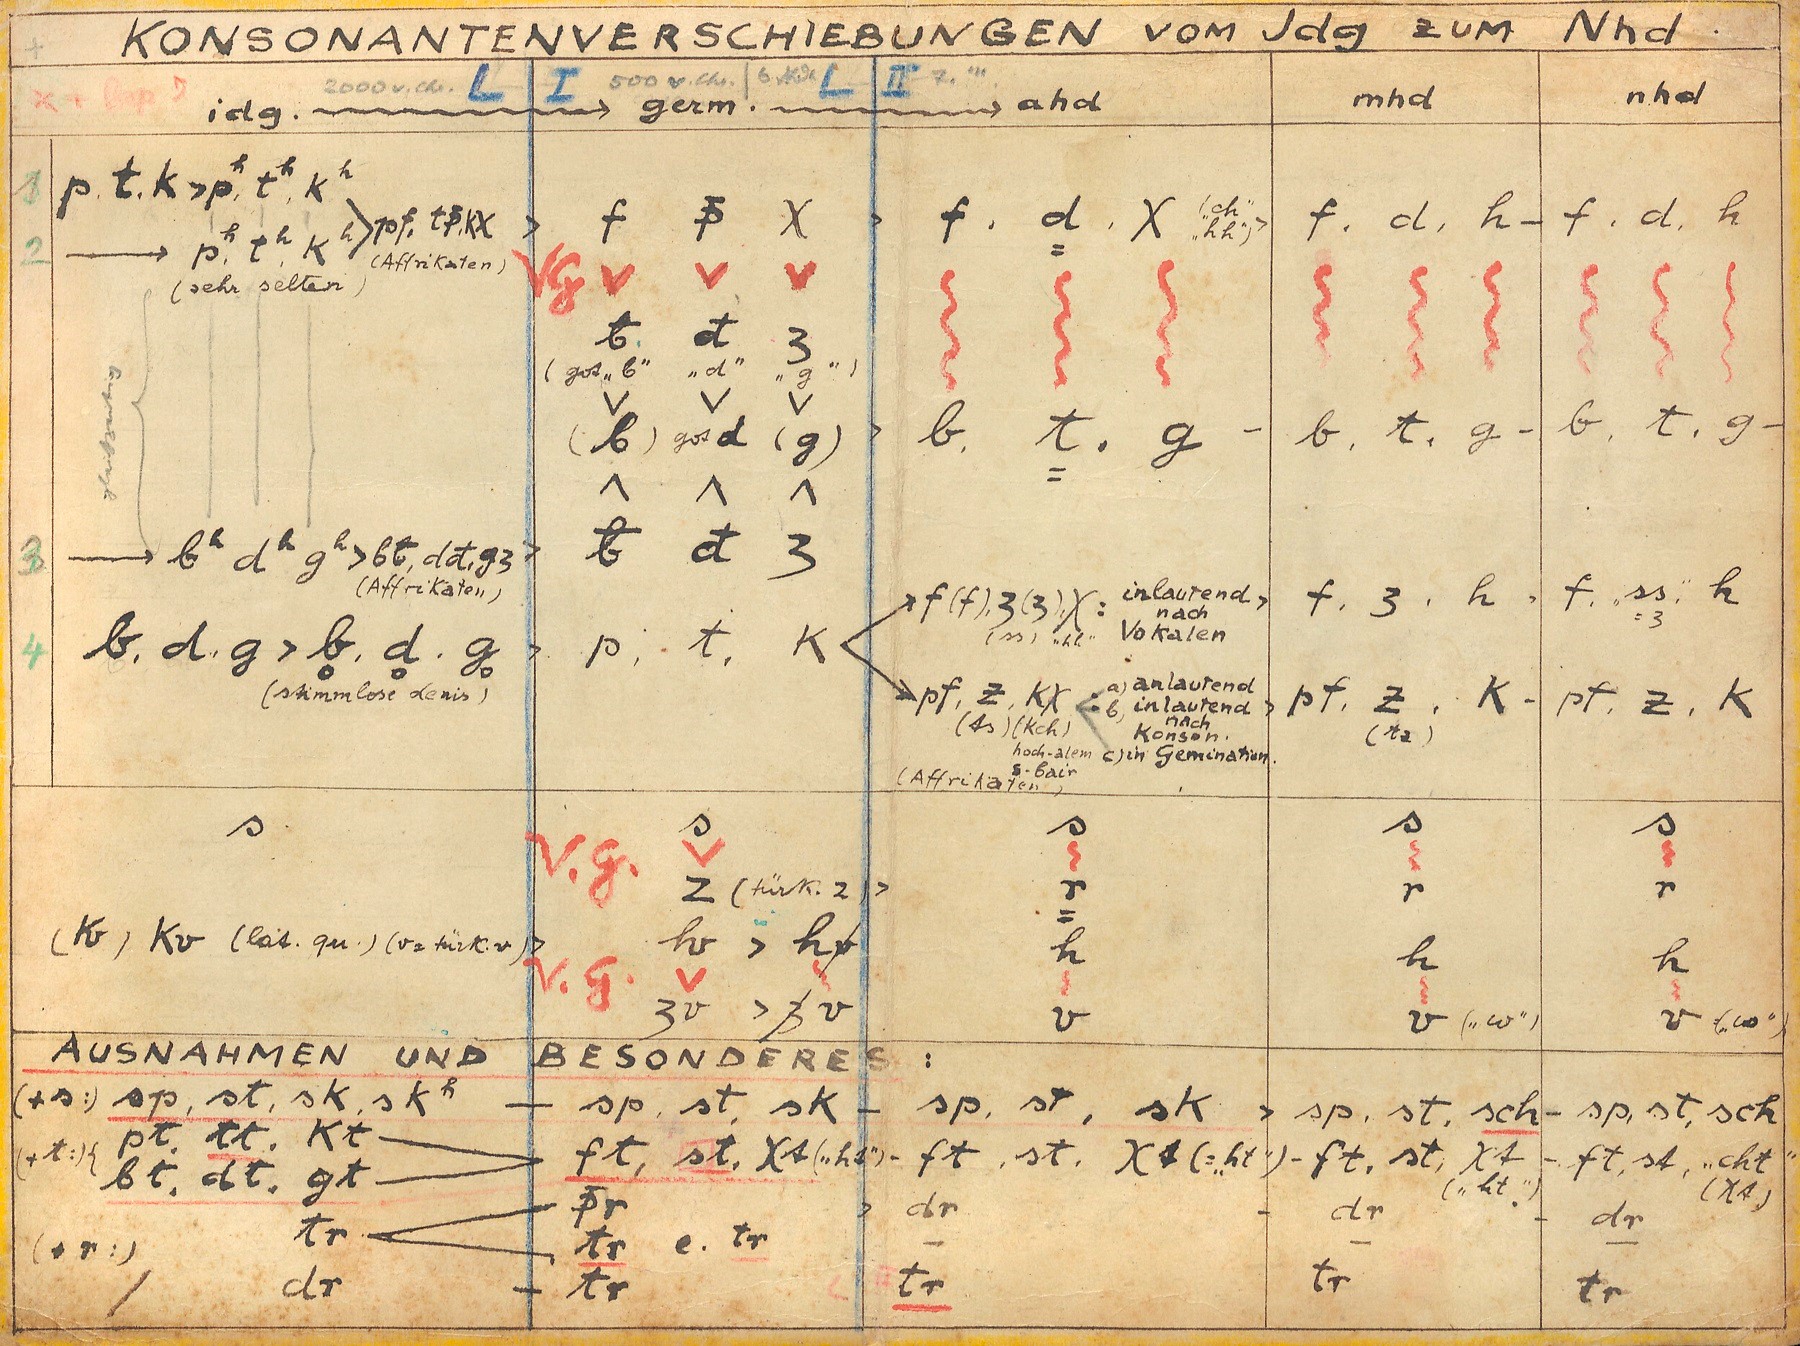 KONSONANTENVERSCHIEBUNGEN VOM Jdg ZUM Nhd.
2000 v. Chr. L I 500 v. Chr. L II 7. "
idg. germ. ahd mhd nhd
1 p. t. k > pʰ. tʰ. kʰ
pf, tþ, kχ > f þ χ > f. d. χ ("ch" "hh") > f. d. h – f. d. h
2 → pʰ. tʰ. kʰ (Affrikaten)
(sehr selten)
VG v v v
ƀ. đ ʒ
(got „b" „d" „g")
v v v
(b) got d (g) > b. t. g – b. t. g – b. t. g –
ʌ ʌ ʌ
3 → bʰ dʰ gʰ > bƀ, dđ, gʒ > ƀ đ ʒ
(Affrikaten)
f(f), ʒ(ʒ), χ: inlautend nach Vokalen > f. ʒ. h > f. „ss" h
(ss) "hh" =ʒ
4 b. d. g > b̥. d̥. g̥ > p. t. k
(stimmlose lenis)
pf, z, kχ : a) anlautend > pf. z. k – pf. z. k
(ts) (kch) b) inlautend nach Konson. (tz)
hoch-alem c) in Gemination.
s-bair
(Affrikaten)
s s s s s
V.g. v
z (türk. z) > r r r
(kv) kv (lat. qu.) (v = türk. v) > hv > hv h h h
V.g. v
ʒv > ʒv v v („w") v („w")
AUSNAHMEN UND BESONDERES:
(+s:) sp, st, sk, skʰ – sp, st, sk – sp, st, sk > sp, st, sch – sp, st, sch
(+t:) { pt, tt, kt
bt, dt, gt
ft, st, χt („ht") – ft, st, χt (= „ht") – ft, st, χt – ft, st, „cht"
(„ht") (χt)
þr > dr – dr – dr
(+r:) tr
tr e. tr
/ dr – tr tr tr tr